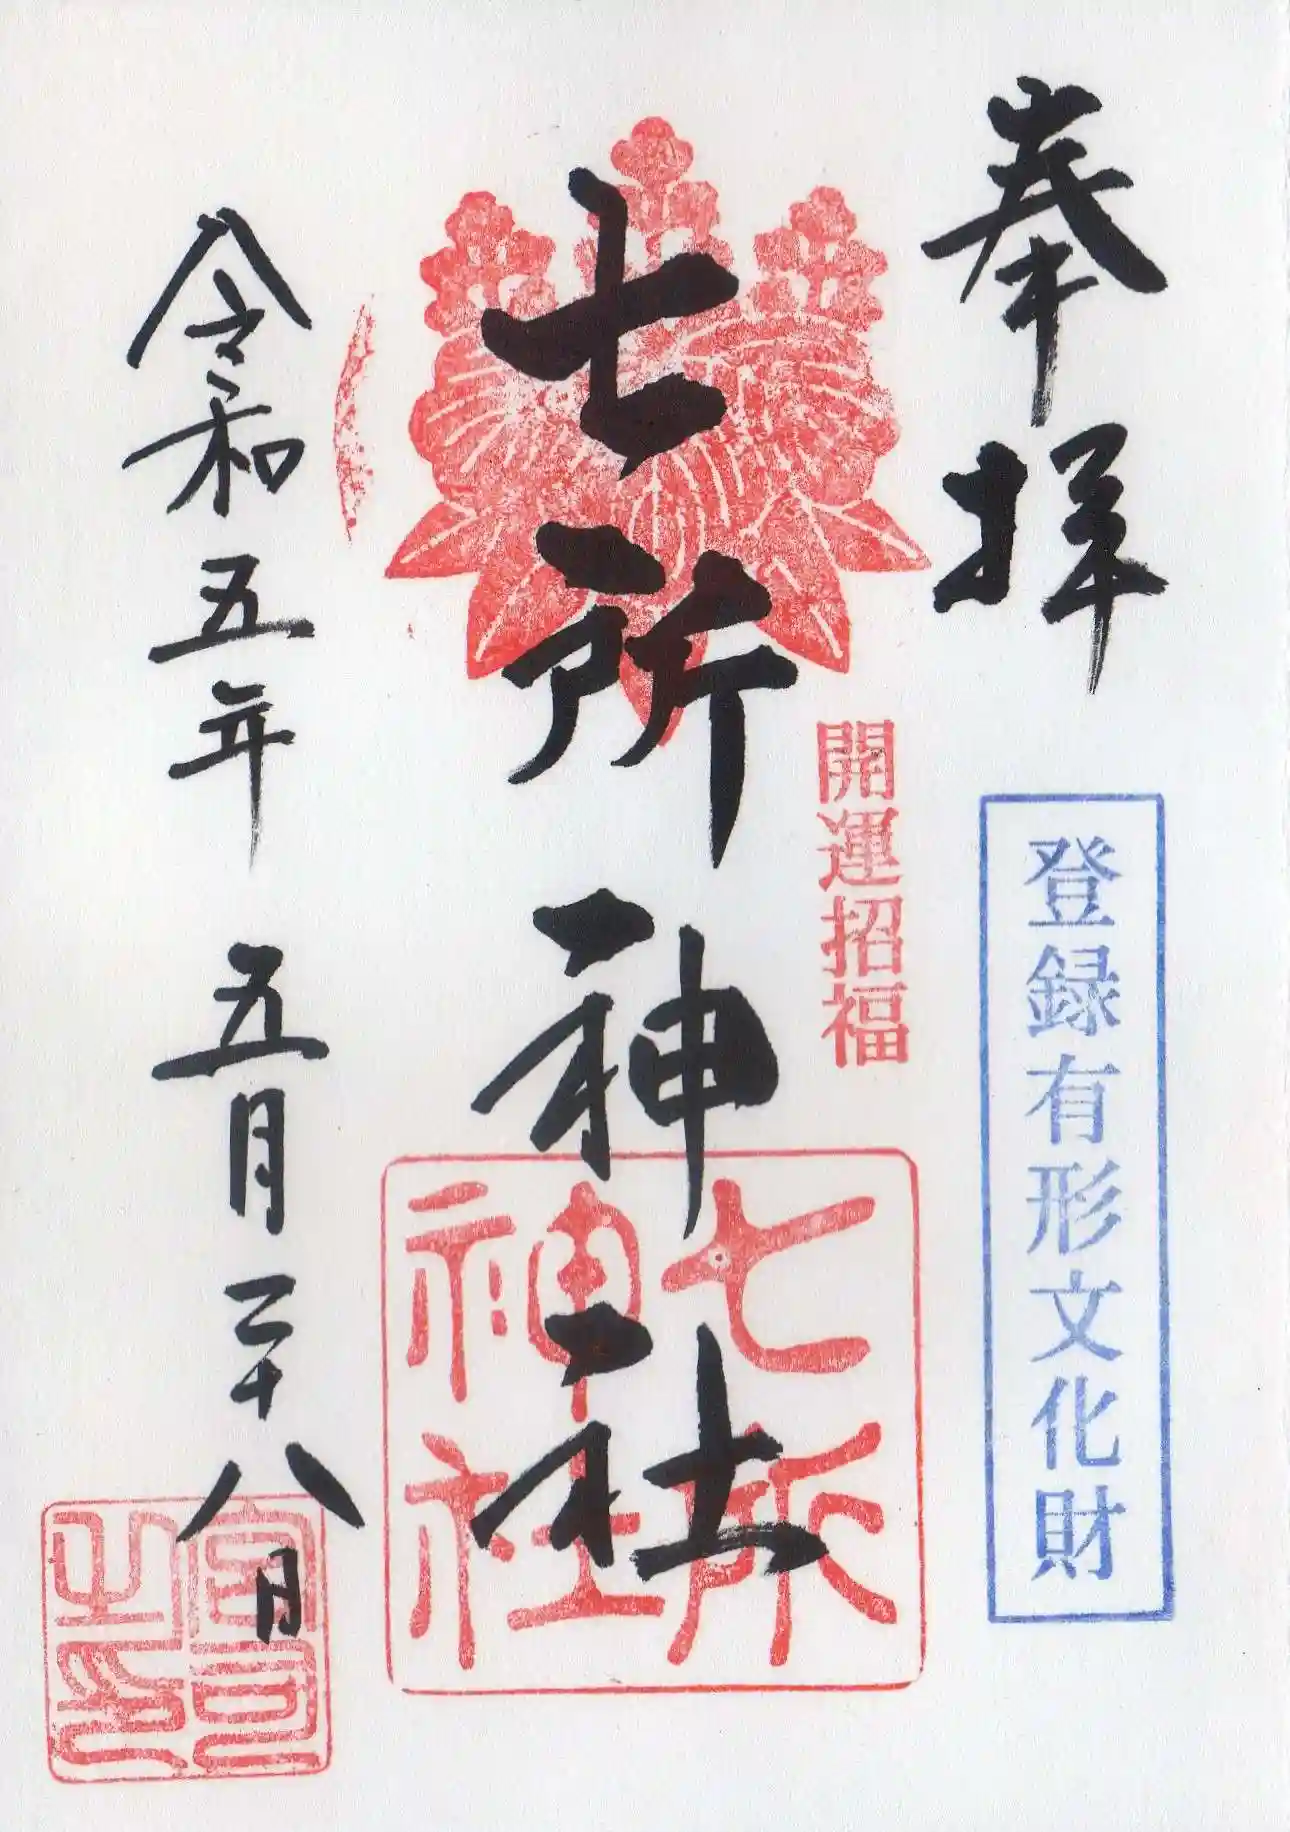 奉拝
登録有形文化財
開運招福
七所神社
七所神社
令和五年 五月二十八日
宮司之印